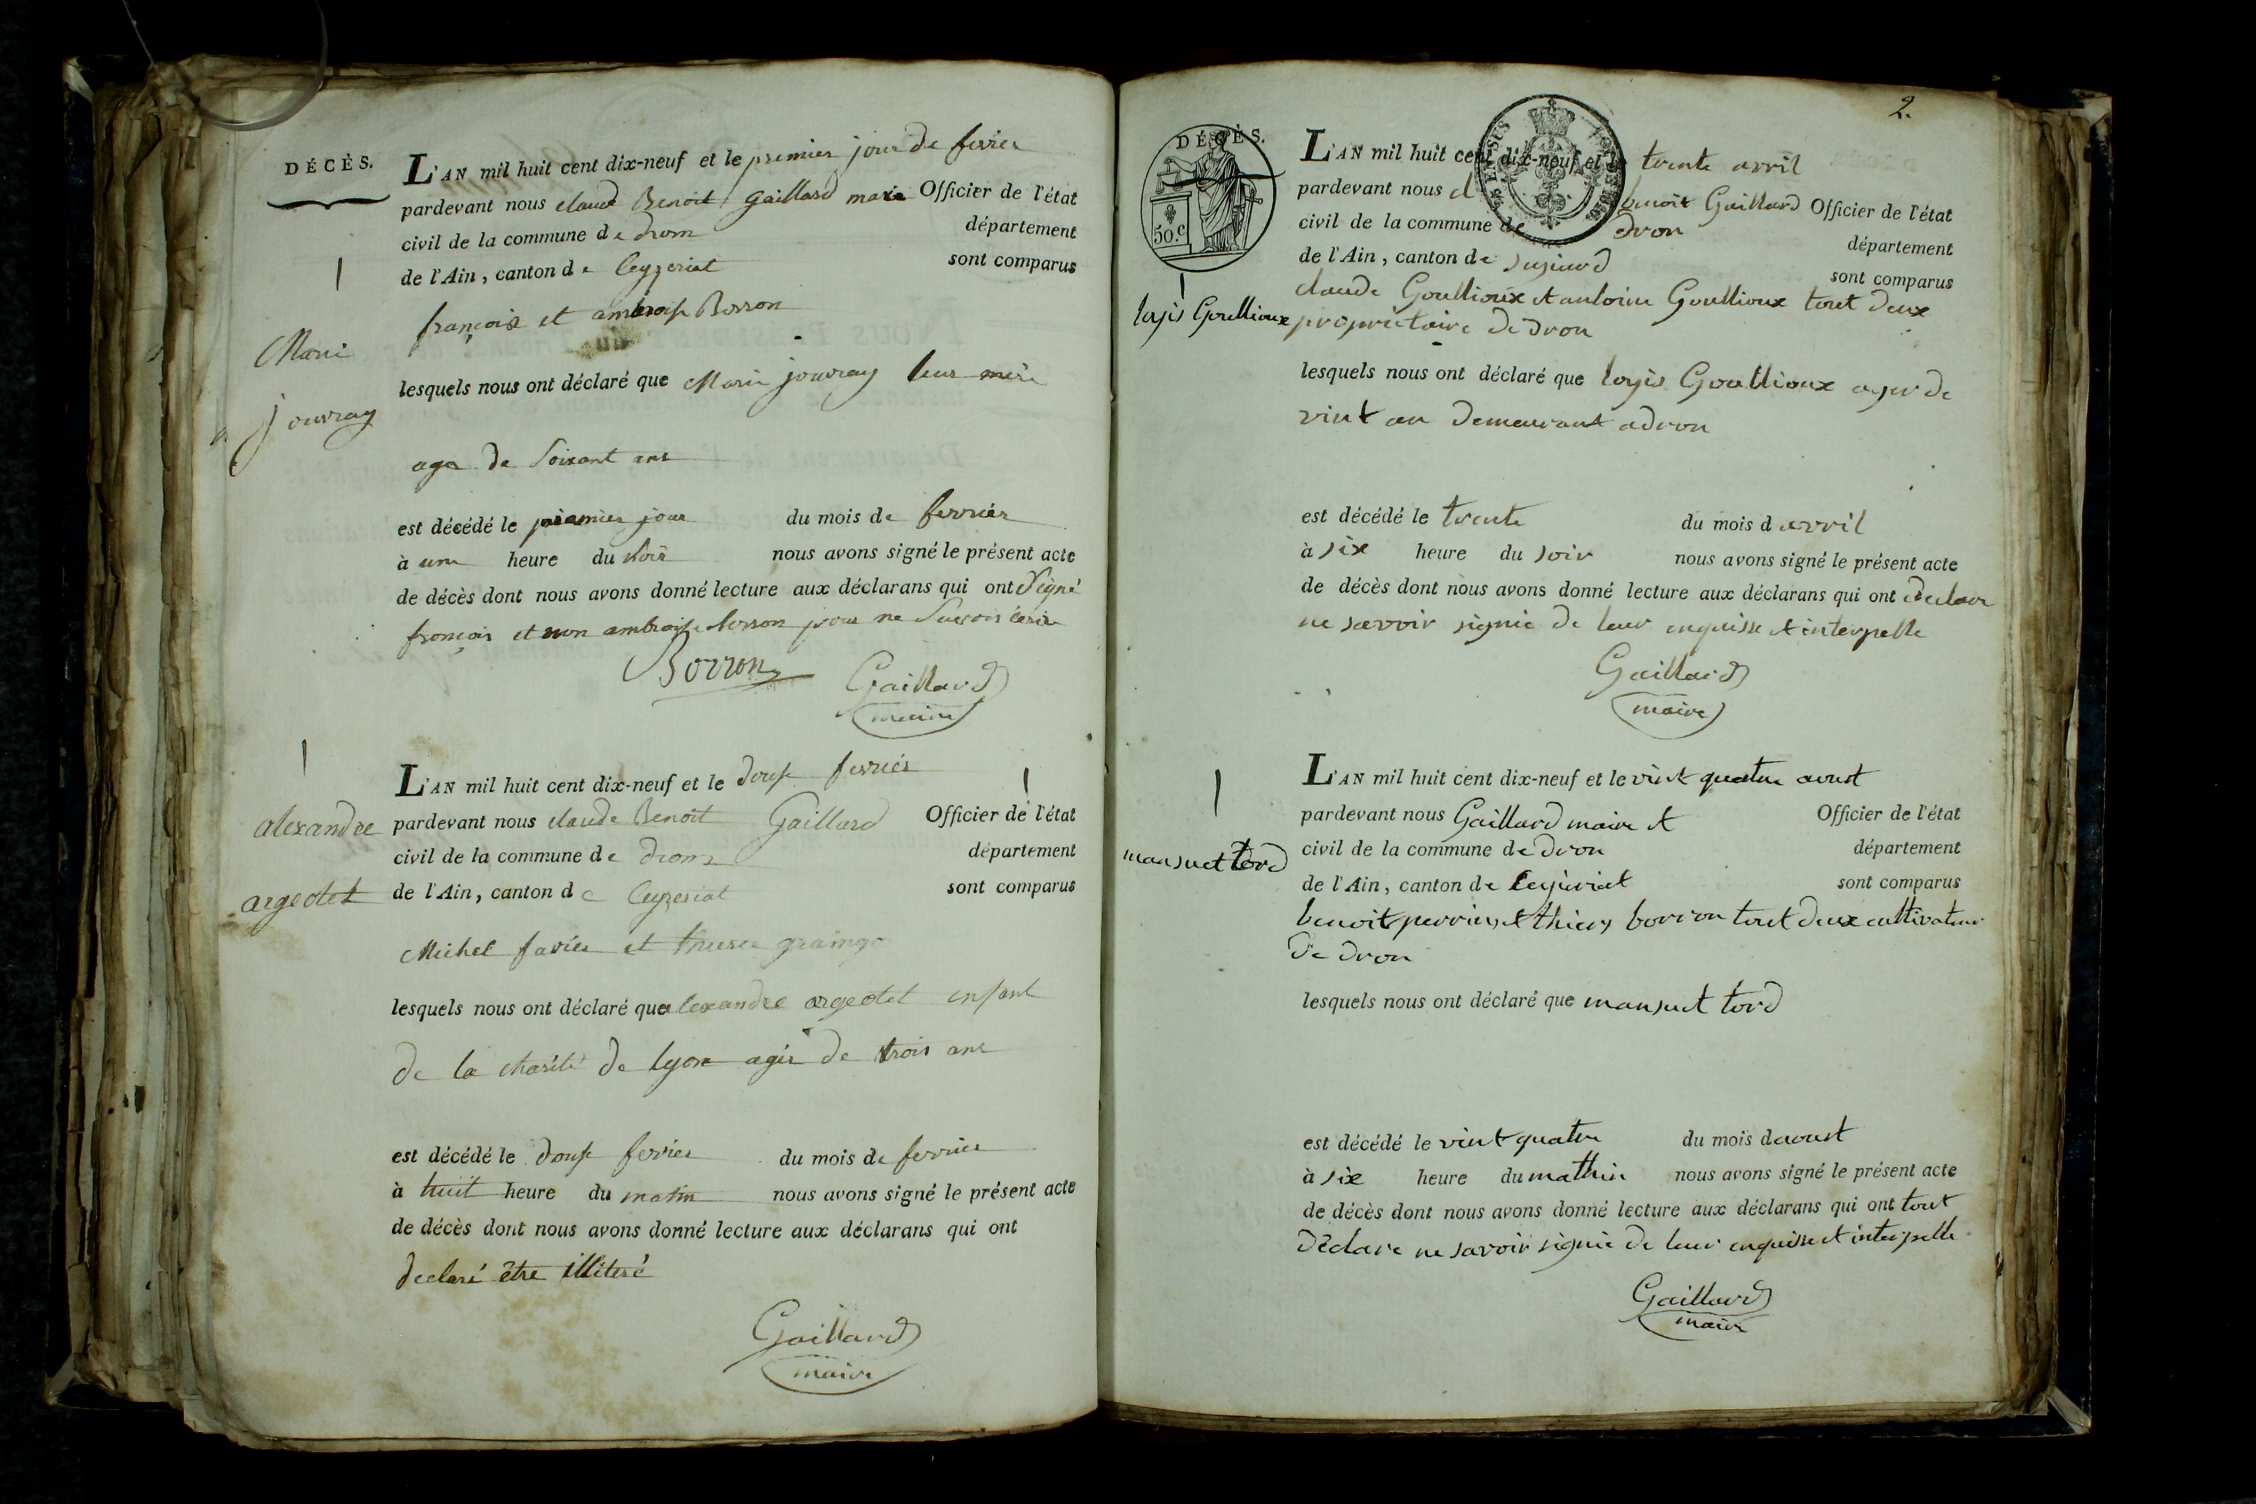 DÉCÈS.
L'AN mil huit cent dix-neuf et le premier jour de fevrier
pardevant nous claude Benoit Gaillard maire Officier de l'état
civil de la commune de drom département
de l'Ain, canton de Ceyzeriat sont comparus
françois et ambroise Borron
Marie
jouvray
lesquels nous ont déclaré que Marie jouvray leur mere
age de soixant ans
est décédé le premier jour du mois de fevrier
à une heure du soir nous avons signé le présent acte
de décès dont nous avons donné lecture aux déclarans qui ont signé
françois et non ambroise borron pour ne savoir
Borron Gaillard
maire
alexandre
argeotet
L'AN mil huit cent dix-neuf et le douse fevrier
pardevant nous claude Benoit Gaillard Officier de l'état
civil de la commune de drom département
de l'Ain, canton de Ceyzeriat sont comparus
Michel favier et
lesquels nous ont déclaré que alexandre argeotet enfant
de la charité de lyon agée de trois ans
est décédé le douse fevrier du mois de fevrier
à huit heure du matin nous avons signé le présent acte
de décès dont nous avons donné lecture aux déclarans qui ont
declaré être illiteré
Gaillard
maire
2.
DÉCÈS.
50.c
L'AN mil huit cent dix-neuf et le trente avril
pardevant nous benoit Gaillard Officier de l'état
civil de la commune de dron département
de l'Ain, canton de sont comparus
claude Goullioux et antoine Goullioux tout deux
proprietaire de dron
loyis Goullioux
lesquels nous ont déclaré que loyis Goullioux ager de
vint an demeurant a dron
est décédé le trente du mois d avril
à six heure du soir nous avons signé le présent acte
de décès dont nous avons donné lecture aux déclarans qui ont declare
ne savoir signie de leur enquisse et interpelle
Gaillard
maire
mansuet tord
L'AN mil huit cent dix-neuf et le vint quatre aoust
pardevant nous Gaillard maire et Officier de l'état
civil de la commune de dron département
de l'Ain, canton de sont comparus
benoit perrier et thiery borron tout deux cultivateur
de dron
lesquels nous ont déclaré que mansuet tord
est décédé le vint quatre du mois daoust
à six heure du mathin nous avons signé le présent acte
de décès dont nous avons donné lecture aux déclarans qui ont tout
déclare ne savoir signie de leur enquisse et interpelle
Gaillard
maire